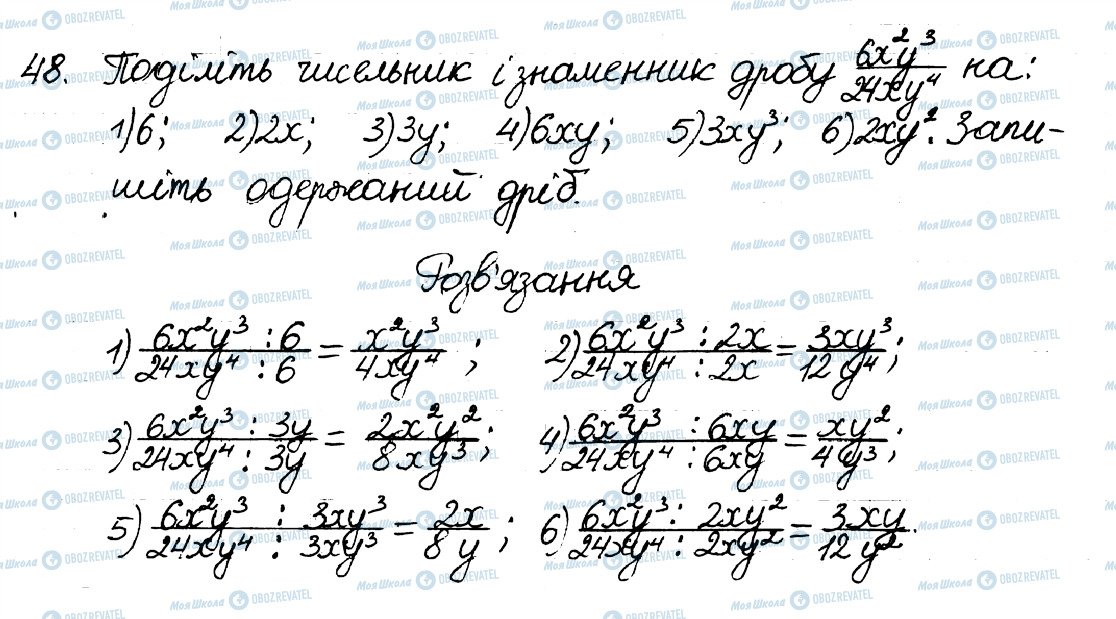 48. Поділіть чисельник і знаменник дробу 6x²y³/24xy⁴ на:
1) 6; 2) 2x; 3) 3y; 4) 6xy; 5) 3xy³; 6) 2xy². Запи-
шіть одержаний дріб.
Розв'язання
1) 6x²y³ : 6 / 24xy⁴ : 6 = x²y³/4xy⁴ ; 2) 6x²y³ : 2x / 24xy⁴ : 2x = 3xy³/12y⁴ ;
3) 6x²y³ : 3y / 24xy⁴ : 3y = 2x²y²/8xy³ ; 4) 6x²y³ : 6xy / 24xy⁴ : 6xy = xy²/4y³ ;
5) 6x²y³ : 3xy³ / 24xy⁴ : 3xy³ = 2x/8y ; 6) 6x²y³ : 2xy² / 24xy⁴ : 2xy² = 3xy/12y² .
Моя Школа OBOZREVATEL